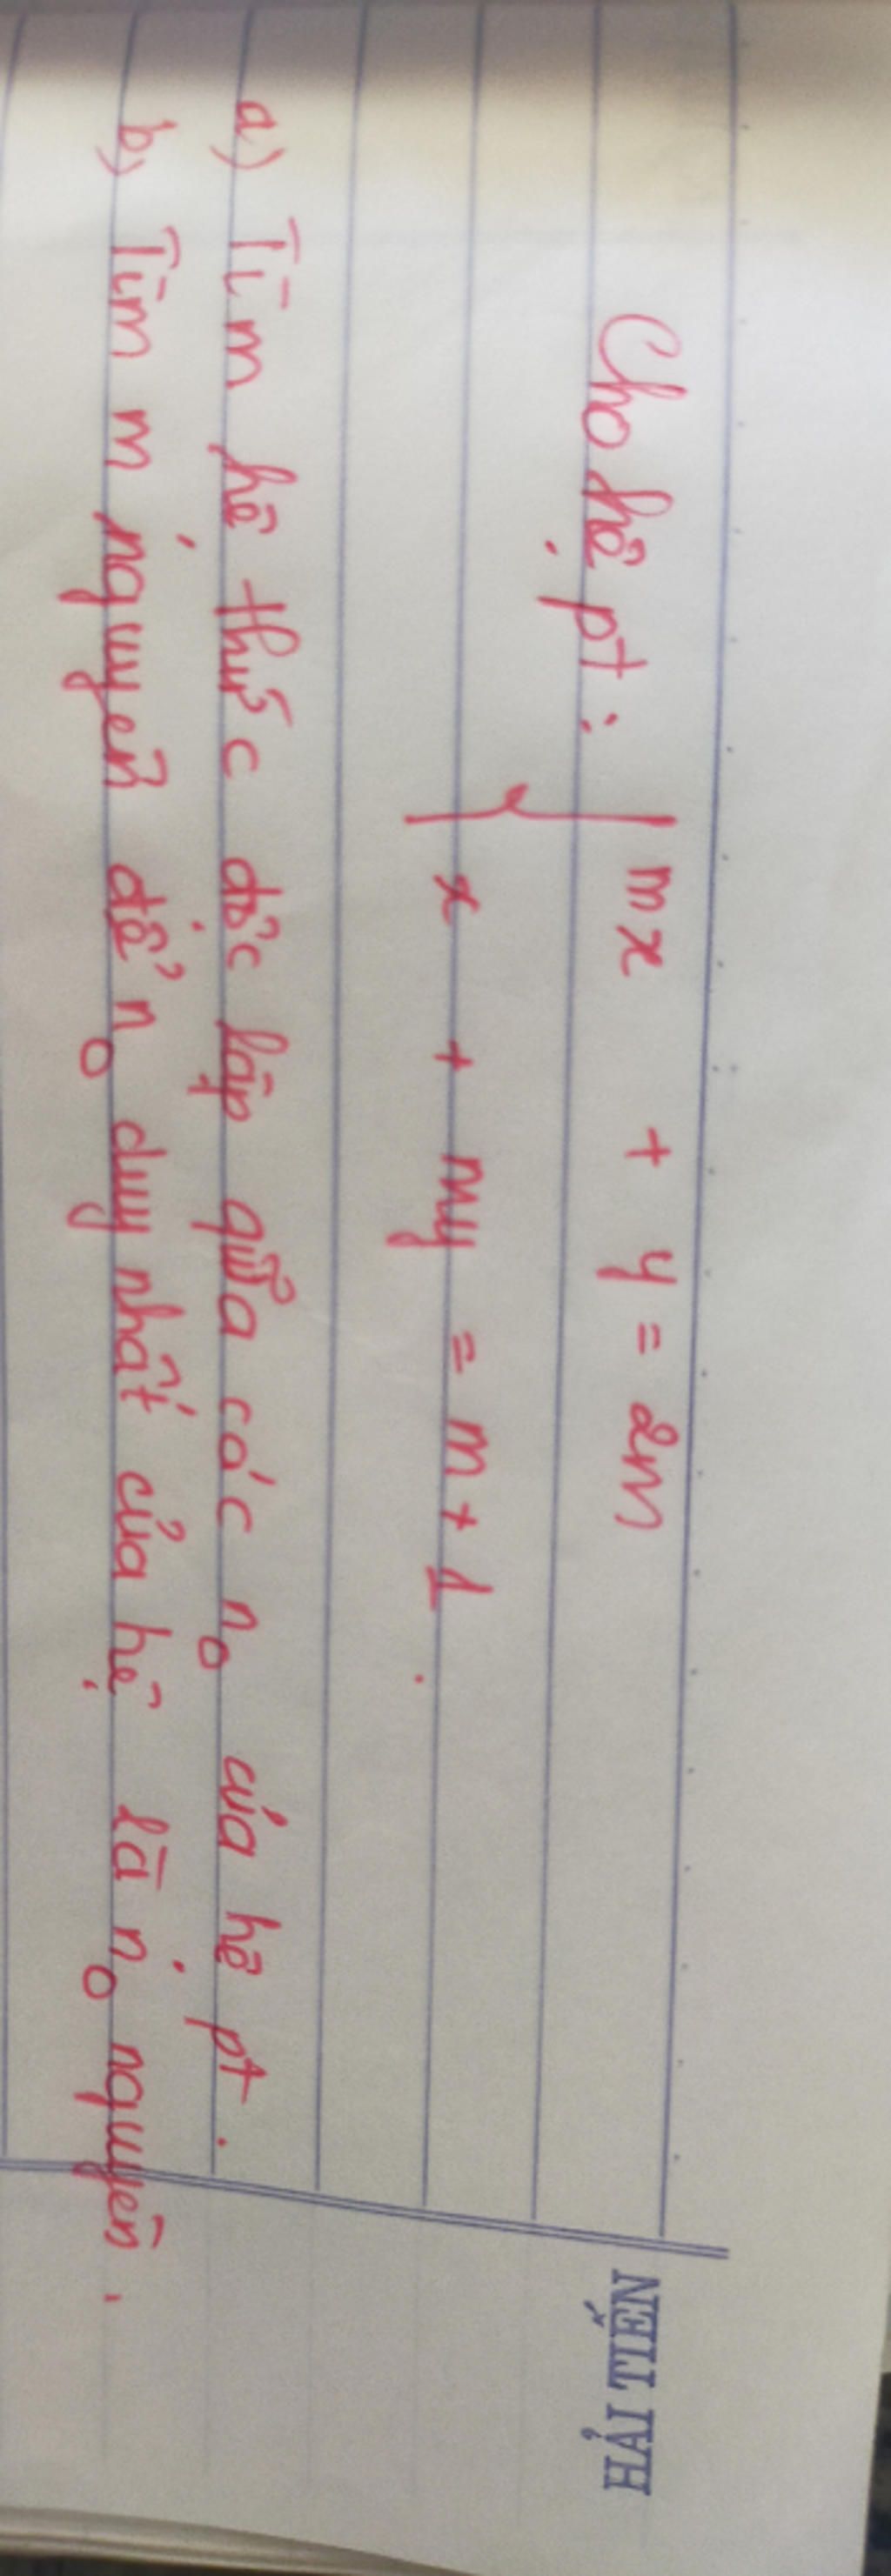 Cho hệ pt : { mx + y = 2m
x + my = m + 1 .
a) Tìm hệ thức độc lập giữa các no của hệ pt .
b) Tìm m nguyên để no duy nhất của hệ là no nguyên .
HẢI TIẾN